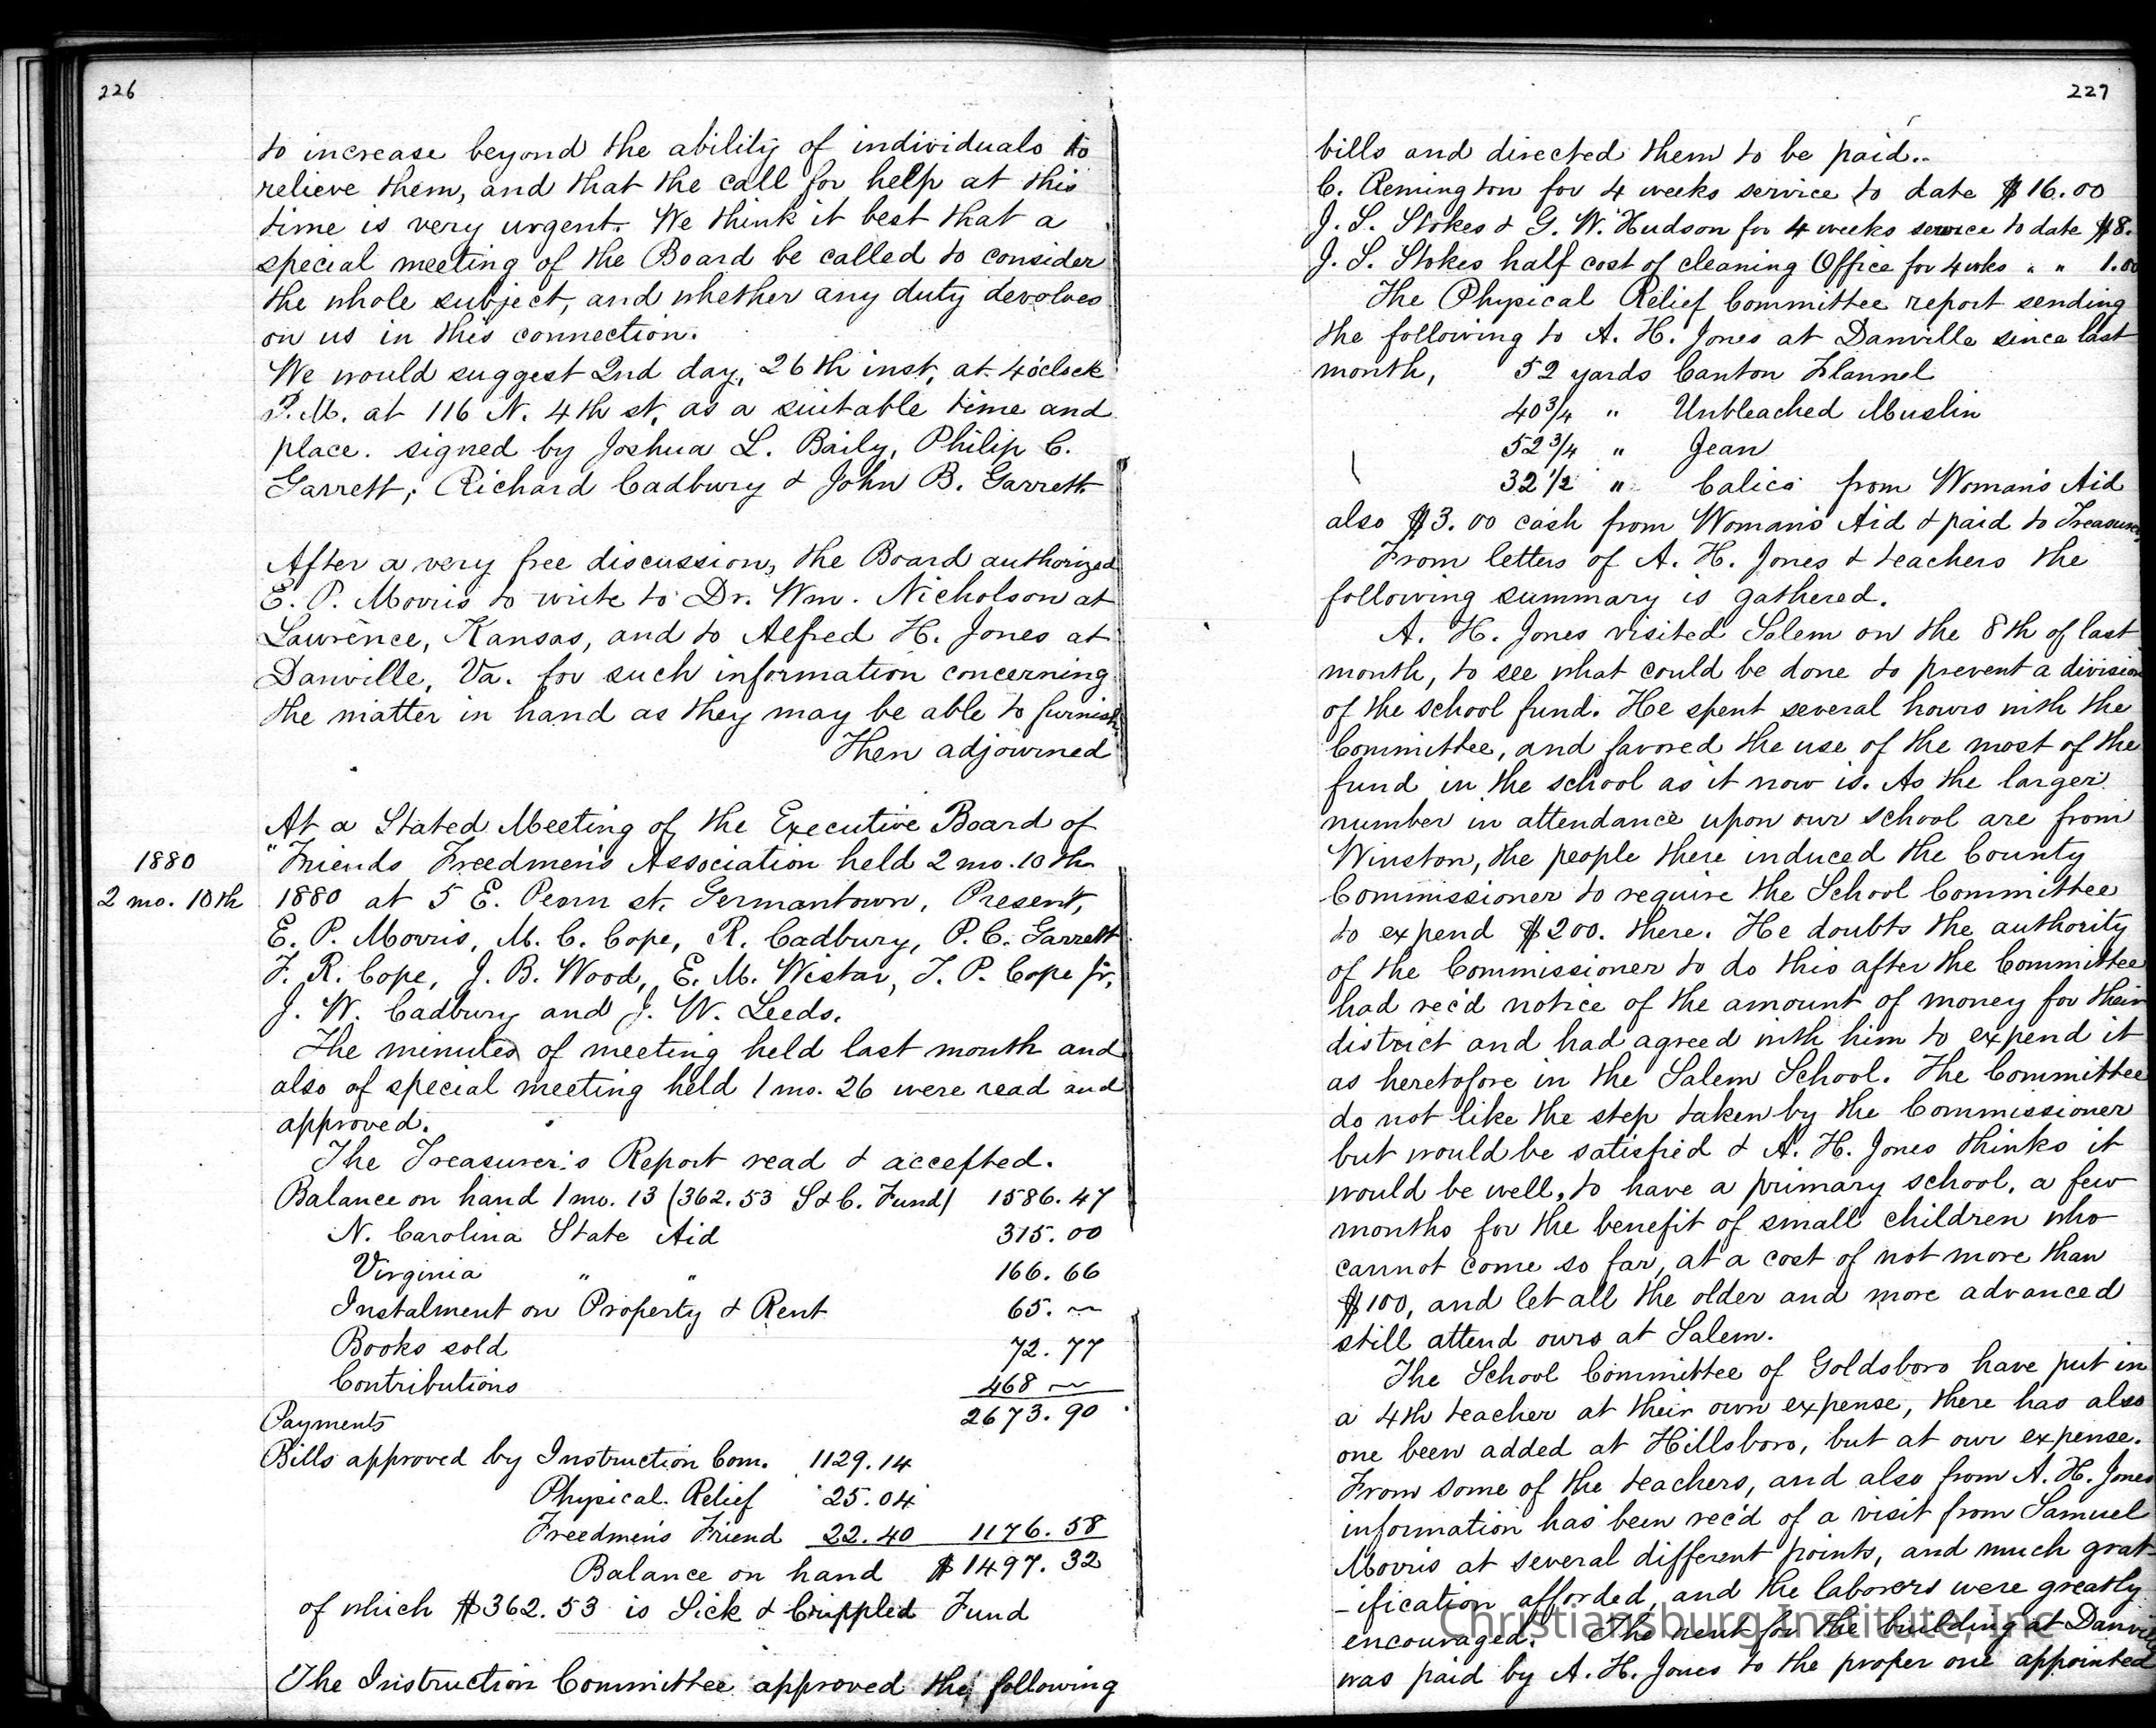 226
to increase beyond the ability of individuals to
relieve them, and that the call for help at this
time is very urgent. We think it best that a
special meeting of the Board be called to consider
the whole subject, and whether any duty devolves
on us in this connection.
We would suggest 2nd day, 26th inst, at 4 o'clock
P.M. at 116 N. 4th st, as a suitable time and
place. signed by Joshua L. Baily, Philip C.
Garrett, Richard Cadbury & John B. Garrett
After a very free discussion, the Board authorized
E. P. Morris to write to Dr. Wm. Nicholson at
Lawrence, Kansas, and to Alfred H. Jones at
Danville, Va. for such information concerning
the matter in hand as they may be able to furnish
Then adjourned
At a Stated Meeting of the Executive Board of
1880 "Friends Freedmen's Association held 2 mo. 10th
2 mo. 10th 1880 at 5 E. Penn st. Germantown, Present,
E. P. Morris, M. C. Cope, R. Cadbury, P. C. Garrett
F. R. Cope, J. B. Wood, E. M. Wistar, T. P. Cope Jr,
J. W. Cadbury and J. W. Leeds.
The minutes of meeting held last month and
also of special meeting held 1 mo. 26 were read and
approved.
The Treasurer's Report read & accepted.
Balance on hand 1 mo. 13 (362.53 S & C. Fund) 1586.47
N. Carolina State Aid 315.00
Virginia " " 166.66
Instalment on Property & Rent 65. ~
Books sold 72.77
Contributions 468 ~
2673.90
Payments
Bills approved by Instruction Com. 1129.14
Physical Relief 25.04
Freedmen's Friend 22.40 1176.58
Balance on hand $1497.32
of which $362.53 is Sick & Crippled Fund
The Instruction Committee approved the following
227
bills and directed them to be paid..
C. Remington for 4 weeks service to date $16.00
J. S. Stokes & G. W. Hudson for 4 weeks service to date $8.
J. S. Stokes half cost of cleaning Office for 4 wks " " 1.00
The Physical Relief Committee report sending
the following to A. H. Jones at Danville since last
month, 52 yards Canton Flannel
40 3/4 " Unbleached Muslin
52 3/4 " Jean
32 1/2 " Calico from Woman's Aid
also $3.00 cash from Woman's Aid & paid to Treasurer
From letters of A. H. Jones & teachers the
following summary is gathered.
A. H. Jones visited Salem on the 8th of last
month, to see what could be done to prevent a division
of the school fund. He spent several hours with the
Committee, and favored the use of the most of the
fund in the school as it now is. As the larger
number in attendance upon our school are from
Winston, the people there induced the County
Commissioner to require the School Committee
to expend $200. there. He doubts the authority
of the Commissioner to do this after the Committee
had rec'd notice of the amount of money for their
district and had agreed with him to expend it
as heretofore in the Salem School. The Committee
do not like the step taken by the Commissioner
but would be satisfied & A. H. Jones thinks it
would be well, to have a primary school, a few
months for the benefit of small children who
cannot come so far, at a cost of not more than
$100, and let all the older and more advanced
still attend ours at Salem.
The School Committee of Goldsboro have put in
a 4th teacher at their own expense, there has also
one been added at Hillsboro, but at our expense.
From some of the teachers, and also from A. H. Jones
information has been rec'd of a visit from Samuel
Morris at several different points, and much grat-
-ification afforded, and the laborers were greatly
encouraged. The rent for the building at Danville
was paid by A. H. Jones to the proper one appointed
Christiansburg Institute, Inc